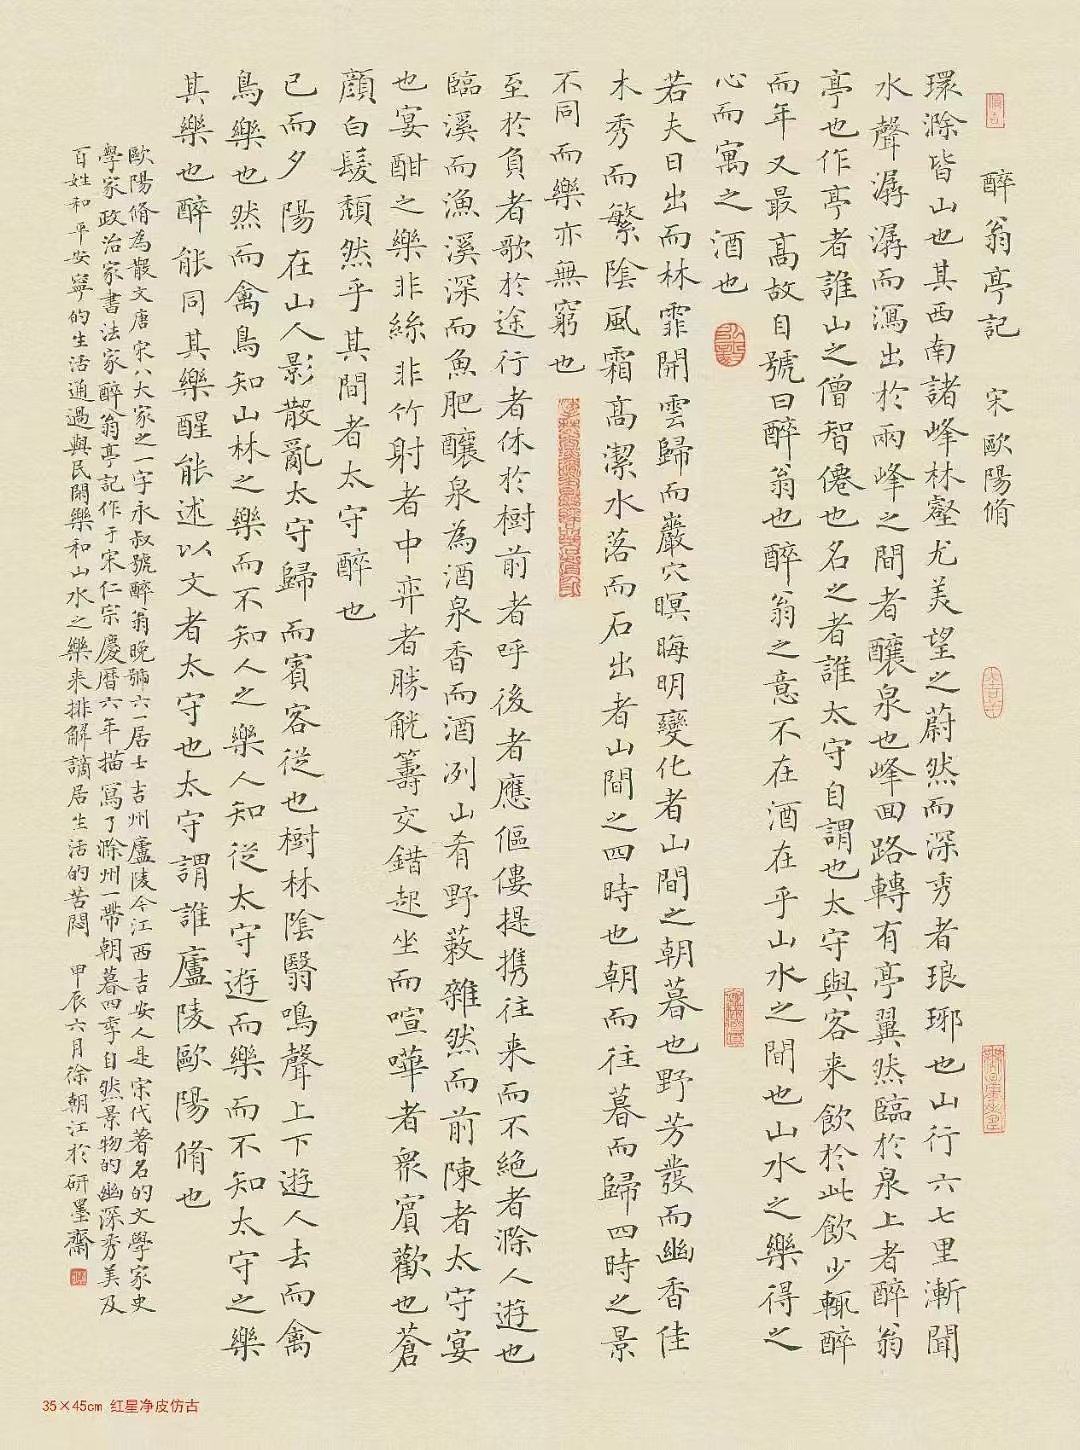 醉翁亭記　宋　歐陽脩
環滁皆山也其西南諸峰林壑尤美望之蔚然而深秀者琅琊也山行六七里漸聞
水聲潺潺而瀉出於兩峰之間者釀泉也峰回路轉有亭翼然臨於泉上者醉翁
亭也作亭者誰山之僧智僊也名之者誰太守自謂也太守與客来飲於此飲少輒醉
而年又最高故自號曰醉翁也醉翁之意不在酒在乎山水之間也山水之樂得之
心而寓之酒也
若夫日出而林霏開雲歸而巖穴暝晦明變化者山間之朝暮也野芳發而幽香佳
木秀而繁陰風霜高潔水落而石出者山間之四時也朝而往暮而歸四時之景
不同而樂亦無窮也
至於負者歌於途行者休於樹前者呼後者應傴僂提携往来而不絕者滁人遊也
臨溪而漁溪深而魚肥釀泉為酒泉香而酒冽山肴野蔌雜然而前陳者太守宴
也宴酣之樂非絲非竹射者中弈者勝觥籌交錯起坐而喧嘩者衆賓歡也蒼
顏白髮頹然乎其間者太守醉也
已而夕陽在山人影散亂太守歸而賓客從也樹林陰翳鳴聲上下遊人去而禽
鳥樂也然而禽鳥知山林之樂而不知人之樂人知從太守遊而樂而不知太守之樂
其樂也醉能同其樂醒能述以文者太守也太守謂誰廬陵歐陽脩也
歐陽脩為散文唐宋八大家之一字永叔號醉翁晚號六一居士吉州廬陵今江西吉安人是宋代著名的文學家史
學家政治家書法家醉翁亭記作于宋仁宗慶曆六年描寫了滁州一帶朝暮四季自然景物的幽深秀美及
百姓和平安寧的生活通過與民同樂和山水之樂来排解謫居生活的苦悶　甲辰六月徐朝江於研墨齋
35×45cm 红星净皮仿古